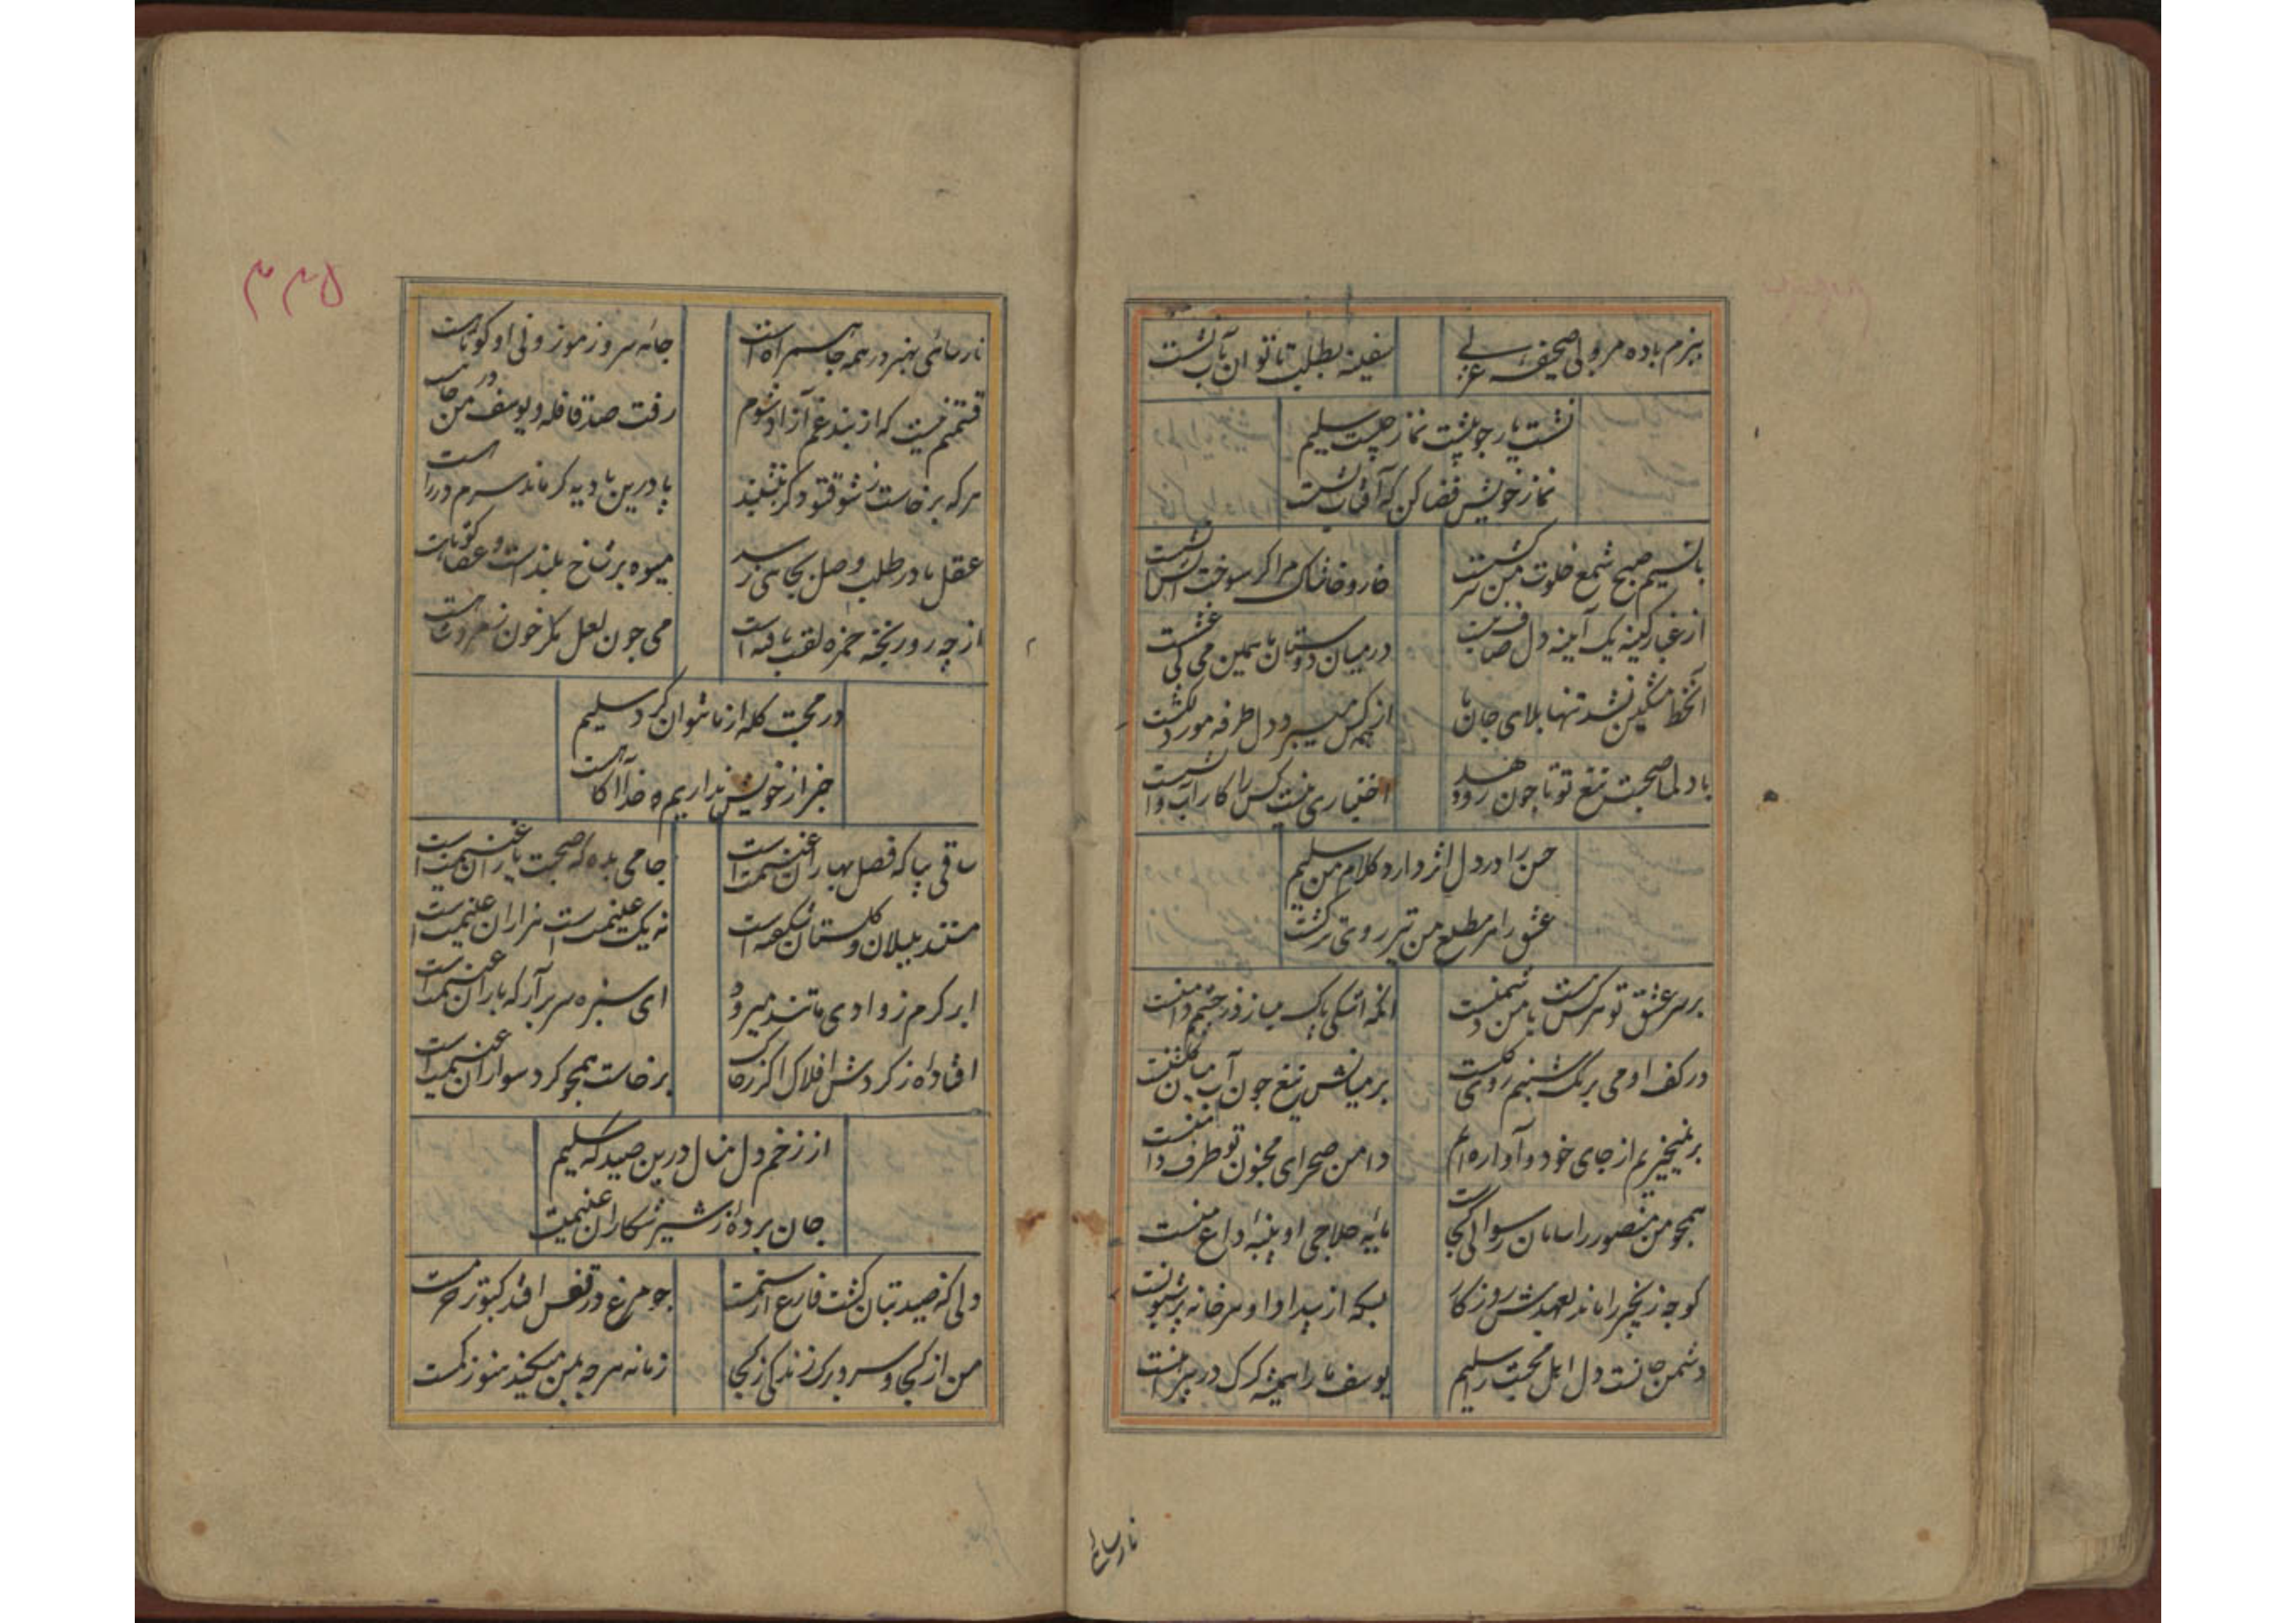 ببزم باده مرو بی صحیفه غزلی
سفینه بطلب تا توان بآب نشست
نشست یار چو پشت نماز چیست سلیم
نماز خویش قضا کن که آفتاب نشست
با نسیم صبح شمع خلوت من سرکشست
خار و خاشاک مرا کر سوخت آتش آتشست
از غبار کینه یک آینه دل صاف نیست
در میان دوستان ما همین می بی غشست
آنخط مشکین نشد تنها بلای جان ما
از همه کس میبرد دل طرفه مور دلکشست
با دلم صحبت تیغ تو تا چون رو دهد
اختیاری نیست کس را کار آب و آتشست
حسن را در دل اثر دارد کلام من سلیم
عشق را هر مطلع من تیر روی ترکشست
بر سر عشق تو هر کس هست با من دشمنست
آنکه اشکی پاک میسازد ز چشمم دامنست
در کف او می برنگ شبنم روی کلست
بر میانش تیغ چون آب میان کلشنست
برنمیخیزیم از جای خود و آواره ایم
دامن صحرای مجنون تو طرف دامنست
همچو من منصور را سامان رسوائی کجاست
مایه حلاجی او پنبه داغ منست
کوچه زنجیر را ماند بعهدش روزکار
بسکه از بیداد او هر خانه پر شیونست
دشمن جانست دل اهل محبت را سلیم
یوسف ما را همیشه کرک در پیراهنست
نارسائی
۳۳۵
نارسائی بهنر در همه جا سر راه است
جامه سرو ز موزونی او کوتاهست
قسمتم نیست که از بند غم آزاد شوم
رفت صد قافله و یوسف من در چاهست
هر که برخاست ز شوق تو دکر ننشیند
پا درین بادیه کر ماند سرم در راهست
عقل ما در طلب وصل بجای نرسد
میوه بر شاخ بلندست و عصا کوتاهست
از چه رو ریخته حمزه لقب یافته است
می چون لعل مکر خون زمردشاهست
در محبت کله از ما نتوان کرد سلیم
خبر از خویش نداریم خدا آکاهست
ساقی بیا که فصل بهاران غنیمت است
جامی بده که صحبت یاران غنیمت است
مستند بلبلان و کلستان شکفته است
نه یک غنیمت است هزاران غنیمت است
ابر کرم ز وادی ما تند میرود
ای سبزه سر برآر که باران غنیمت است
افتاده از کردش افلاک اکر ز خاک
برخاست همچو کرد سواران غنیمت است
از زخم دل منال درین صیدکه سلیم
جان برده از شیر شکاران غنیمت
دلی که صید بتان کشت فارغ از ستمست
چو مرغ در قفس افتد کبوتر حرمست
من از کجا و سر و برک زندکی ز کجا
زمانه هر چه بمن میکند هنوز کمست